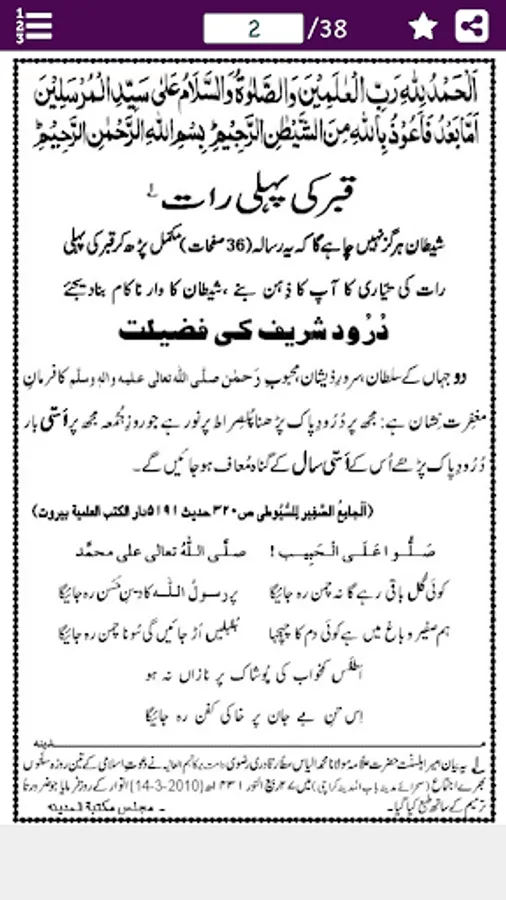 1 2 3
2 /38
اَلْحَمْدُ لِلّٰهِ رَبِّ الْعٰلَمِیْنَ وَالصَّلٰوةُ وَالسَّلَامُ عَلٰی سَیِّدِ الْمُرْسَلِیْنَ
اَمَّا بَعْدُ فَاَعُوْذُ بِاللّٰهِ مِنَ الشَّیْطٰنِ الرَّجِیْمِ ؕ بِسْمِ اللّٰهِ الرَّحْمٰنِ الرَّحِیْمِ ؕ
قبر کی پہلی رات ۱؎
شیطان ہرگز نہیں چاہے گا کہ یہ رسالہ (36 صفحات) مکمل پڑھ کر قبر کی پہلی
رات کی تیّاری کا آپ کا ذِہن بنے ، شیطان کا وار ناکام بنا دیجئے
دُرُود شریف کی فضیلت
دو جہاں کے سلطان، سرورِ ذیشان، محبوبِ رَحمٰن صلَّی اللہ تعالٰی علیہ واٰلہٖ وسلَّم کا فرمانِ
مغفِرت نِشان ہے: مجھ پر دُرُودِ پاک پڑھنا پُلصِراط پر نور ہے جو روزِ جُمعہ مجھ پر اَسّی بار
دُرُودِ پاک پڑھے اُس کے اَسّی سال کے گناہ مُعاف ہو جائیں گے۔
(اَلْجامِعُ الصَّغِیر لِلسُّیُوطی ص۳۲۰ حدیث ۵۱۹۱ دار الکتب العلمیة بیروت)
صَلُّوا عَلَی الْحَبِیب ! صلَّی اللہُ تعالٰی علٰی محمَّد
کوئی گل باقی رہے گا نہ چمن رہ جائیگا پر رسولُ اللہ کا دینِ حَسَن رہ جائیگا
ہم صفیر و باغ میں ہے کوئی دم کا چہچہا بلبلیں اُڑ جائیں گی سُونا چمن رہ جائیگا
اطلَس کمخواب کی پوشاک پر نازاں نہ ہو
اِس تنِ بے جان پر خاکی کفن رہ جائیگا
مـــدینہ
۱؎ یہ بیان امیرِ اہلسنّت حضرت علّامہ مولانا محمد الیاس عطّار قادری رضوی دامت برکاتہم العالیہ نے دعوتِ اسلامی کے تین روزہ سنّتوں
بھرے اجتماع (صحرائے مدینہ باب المدینہ کراچی) میں ۲۷ ربیع النور ۱۴۳۱ھ (14-3-2010) اتوار کے روز فرمایا جو ضرورتاً
ترمیم کے ساتھ طبع کیا گیا۔ ۔ مجلس مکتبة المدینه